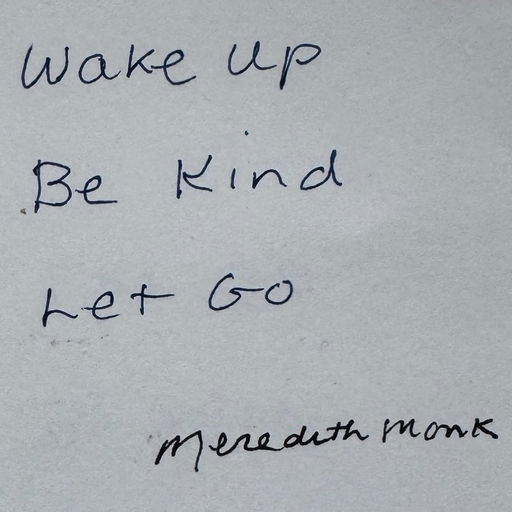 Wake up
Be Kind
Let Go
Meredith Monk